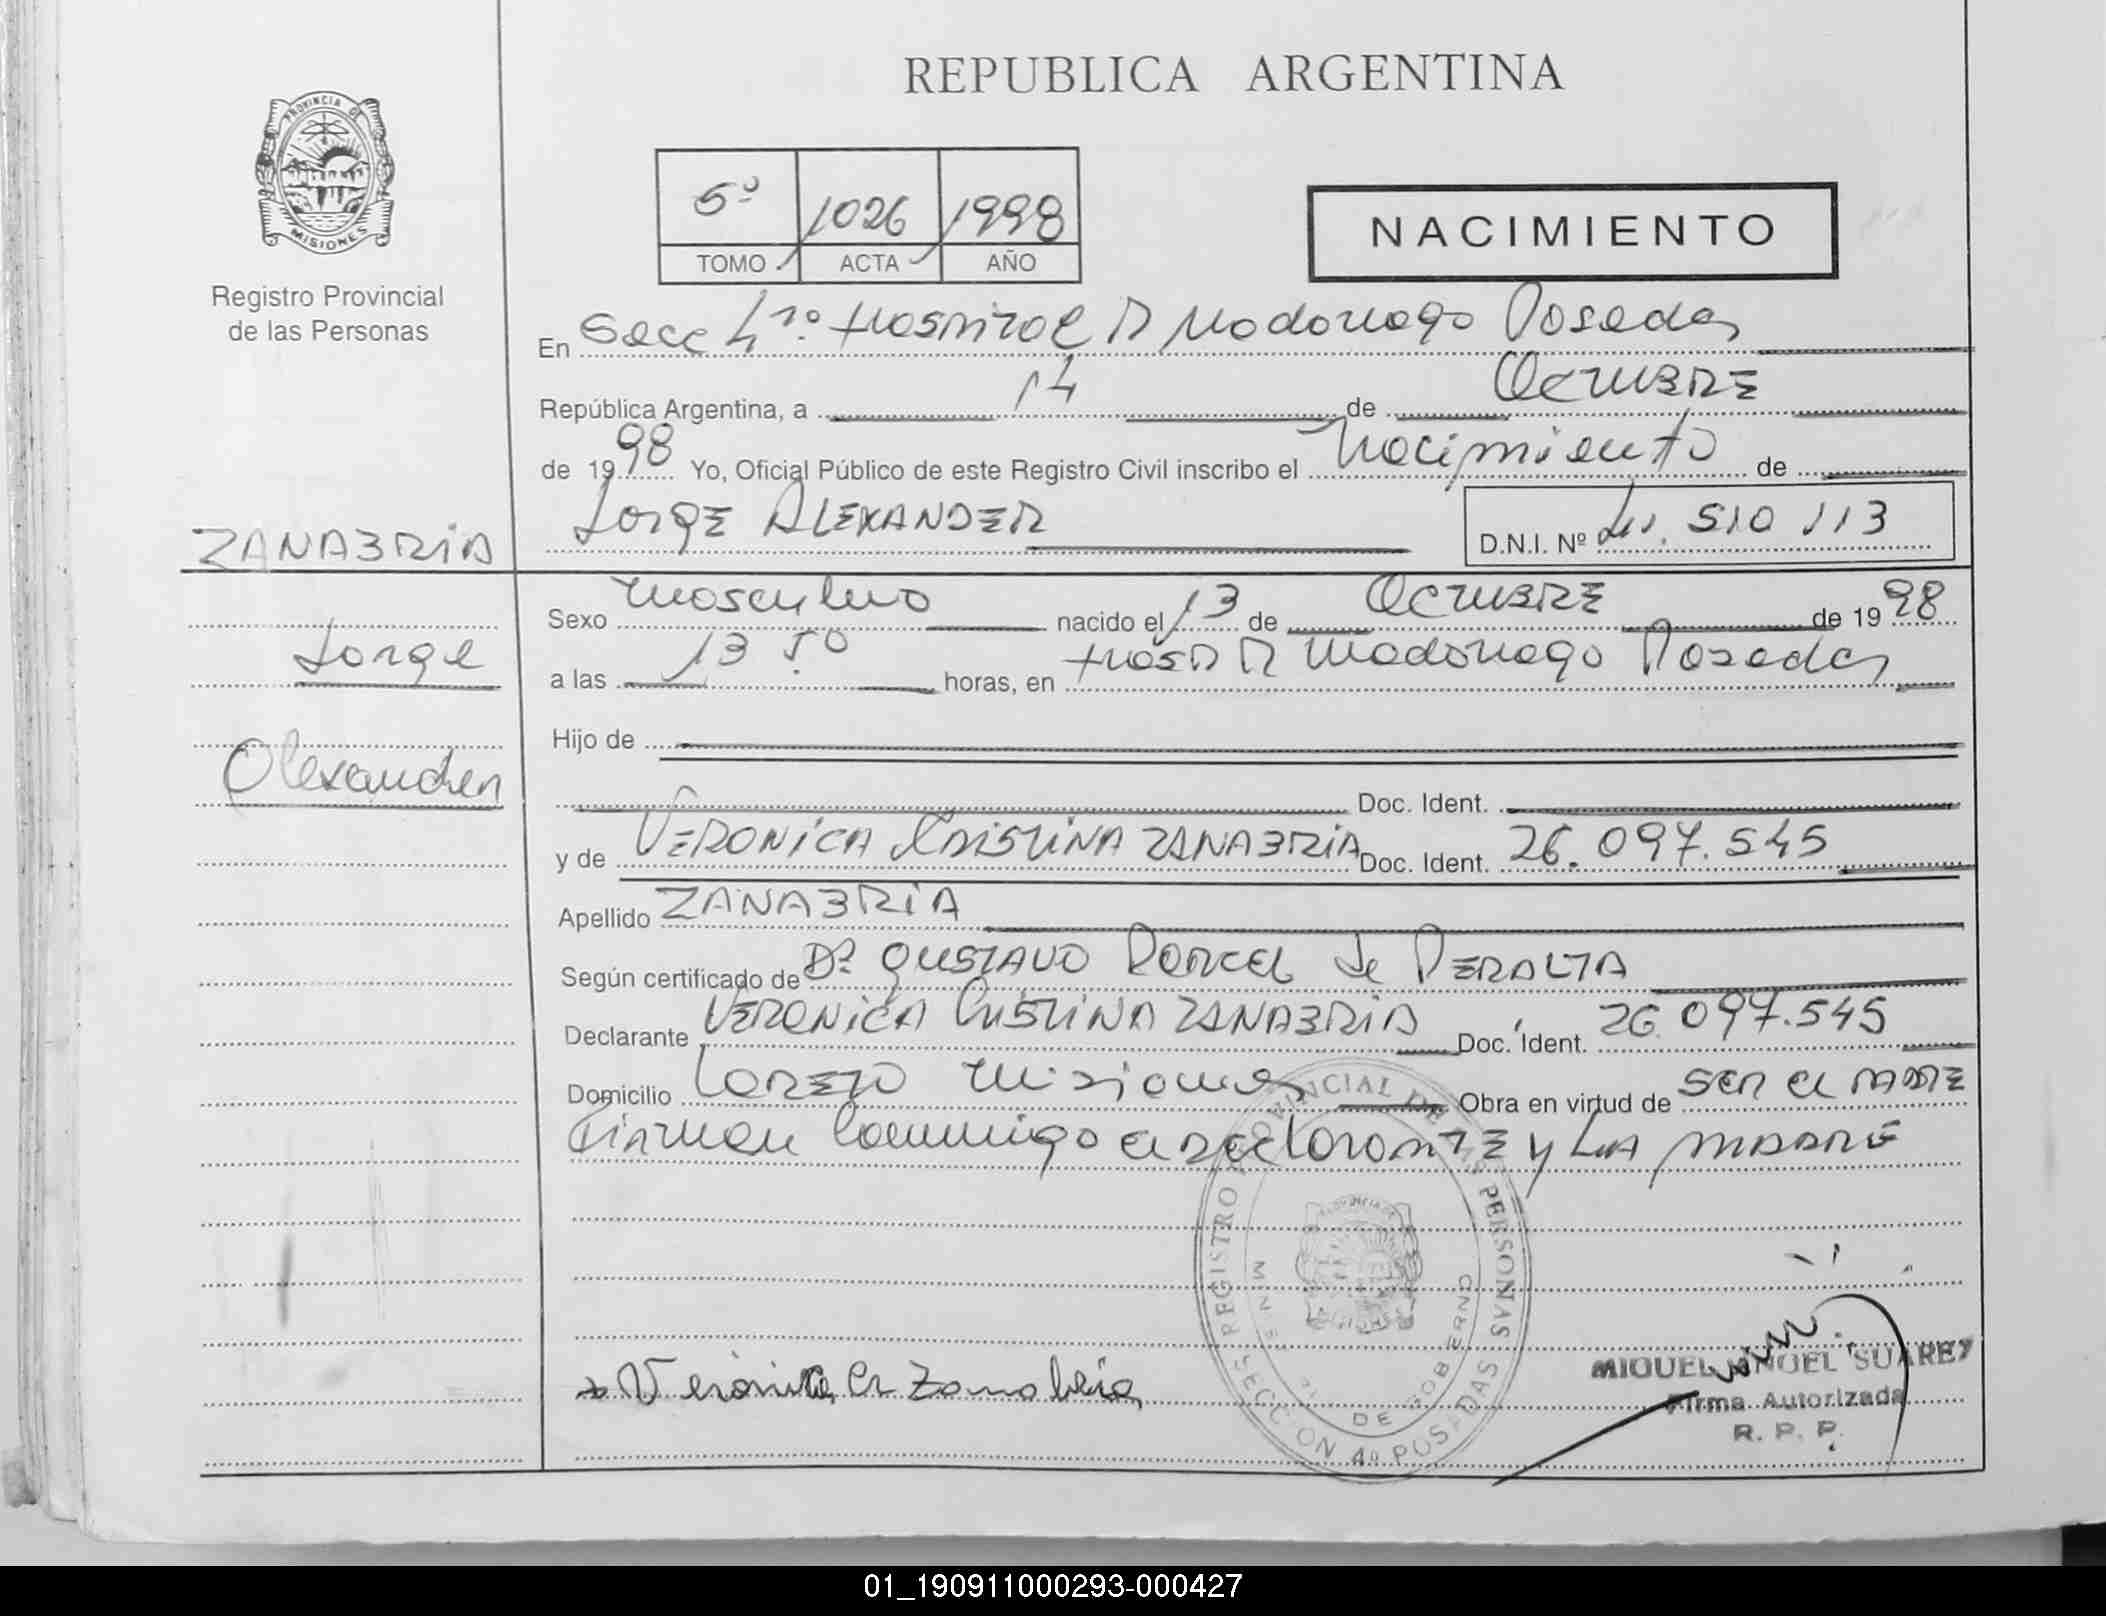 REPUBLICA ARGENTINA
PROVINCIA DE
MISIONES
5º 1026 1998
TOMO ACTA AÑO
NACIMIENTO
Registro Provincial
de las Personas
En Secc 4ª Hospital R Madariaga Posadas
República Argentina, a 14 de OCTUBRE
de 1998 Yo, Oficial Público de este Registro Civil inscribo el Nacimiento de
JORGE ALEXANDER D.N.I. Nº 41.510 113
ZANABRIA
Sexo Masculino nacido el 13 de OCTUBRE de 1998
Jorge
a las 13 50 horas, en Hosp R Madariaga Posadas
Hijo de
Alexander
Doc. Ident.
y de VERONICA CRISTINA ZANABRIA Doc. Ident. 26.097.545
Apellido ZANABRIA
Según certificado de Dr GUSTAVO PORCEL de PERALTA
Declarante VERONICA CRISTINA ZANABRIA Doc. Ident. 26.097.545
Domicilio LORETO Misiones Obra en virtud de ser el
Firman Conmigo y LA MADRE
REGISTRO PROVINCIAL DE LAS PERSONAS
DE GOBIERNO
SECCION 4º POSADAS
Verónica Cr Zanabria
MIGUEL ANGEL SUAREZ
Firma Autorizada
R. P. P.
01_190911000293-000427